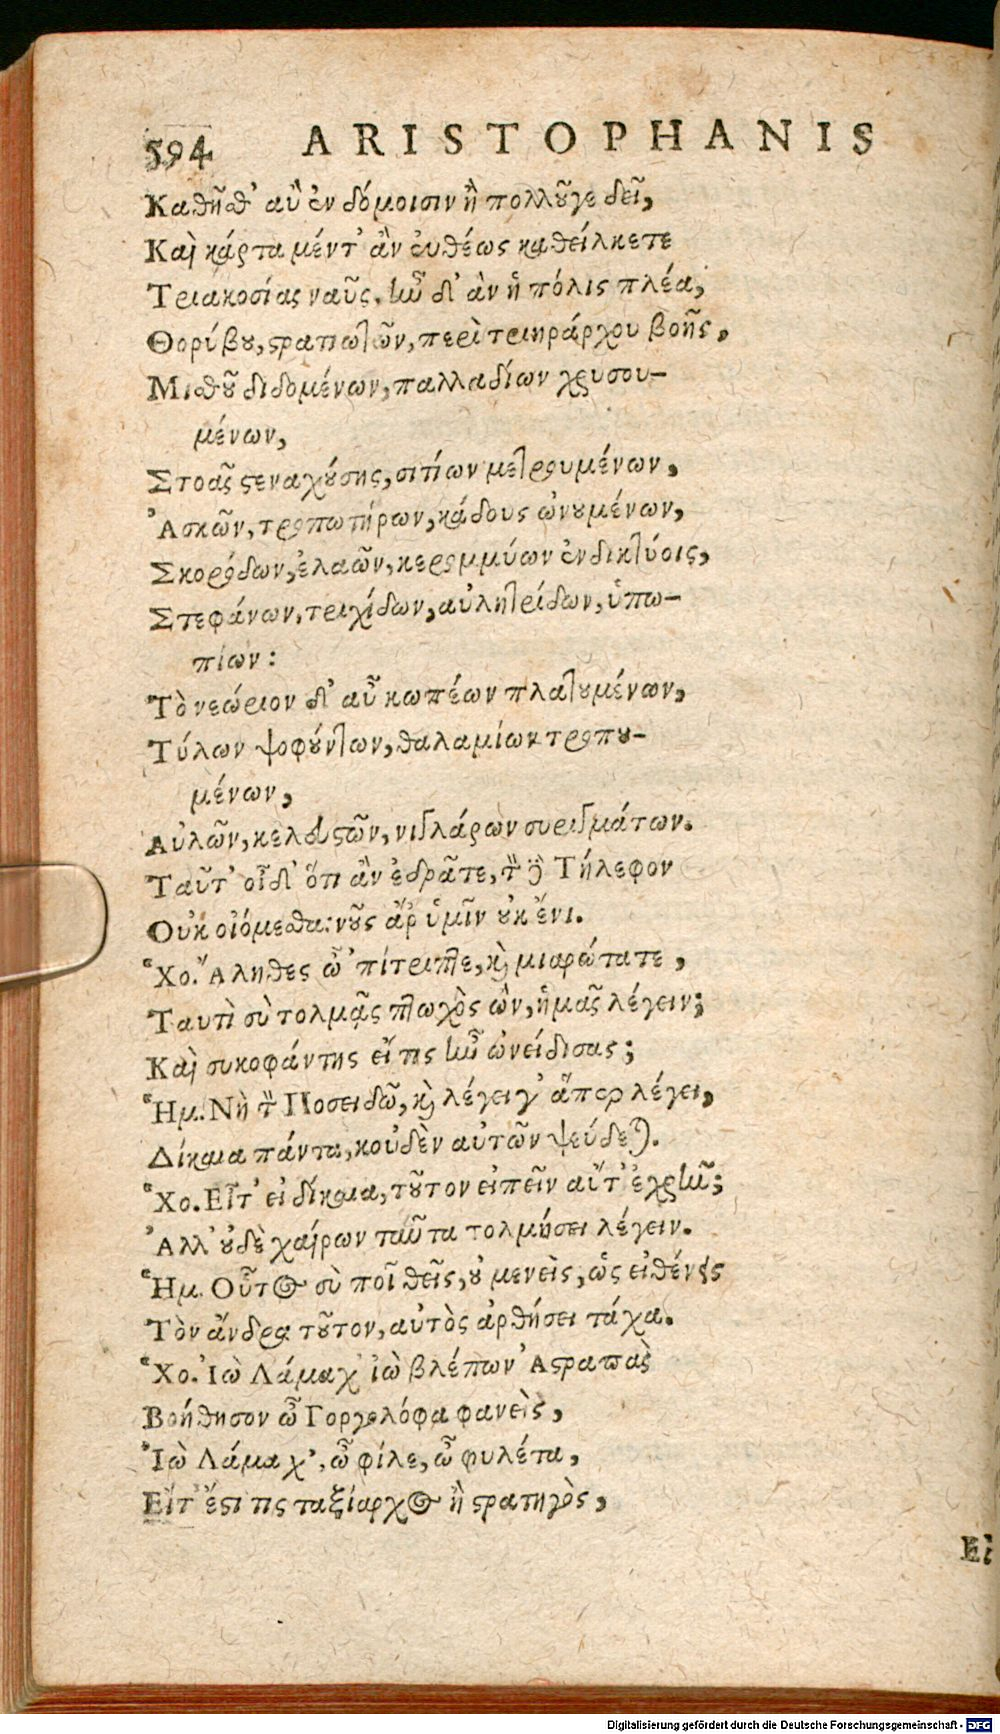 594 ARISTOPHANIS
Καθῆσθ' αὖ ἐν δόμοισιν ἢ πολλοῦγε δεῖ,
Καὶ κάρτα μέντ' ἂν εὐθέως καθείλκετε
Τριακοσίας ναῦς, ἦν δ' ἂν ἡ πόλις πλέα,
Θορύβου, στρατιωτῶν, περὶ τριηράρχου βοῆς,
Μισθοῦ διδομένων, παλλαδίων χρυσου-
μένων,
Στοᾶς στεναχούσης, σιτίων μετρουμένων,
Ἀσκῶν, τροπωτήρων, κάδους ὠνουμένων,
Σκορόδων, ἐλαῶν, κερομμύων ἐν δικτύοις,
Στεφάνων, τριχίδων, αὐλητρίδων, ὑπω-
πίων:
Τὸ νεώριον δ' αὖ κωπέων πλατουμένων,
Τύλων ψοφούντων, θαλαμίων τροπου-
μένων,
Αὐλῶν, κελευστῶν, νιγλάρων συριγμάτων.
Ταῦτ' οἶδ' ὅτι ἂν ἐδρᾶτε, τὸν δὲ Τήλεφον
Οὐκ οἰόμεσθα: νοῦς ἄρ' ὑμῖν οὐκ ἔνι.
Χο. Ἄληθες ὦ 'πίτριπτε, καὶ μιαρώτατε,
Ταυτὶ σὺ τολμᾷς πτωχὸς ὢν, ἡμᾶς λέγειν;
Καὶ συκοφάντης εἴ τις ἦν ὠνείδισας;
Ἡμ. Νὴ τὸν Ποσειδῶ, καὶ λέγει γ' ἅπερ λέγει,
Δίκαια πάντα, κοὐδὲν αὐτῶν ψεύδεται.
Χο. Εἶτ' εἰ δίκαια, τοῦτον εἰπεῖν αὔτ' ἐχρῆν;
Ἀλλ' οὐδὲ χαίρων ταῦτα τολμήσει λέγειν.
Ἡμ. Οὗτος σὺ ποῖ θεῖς, οὐ μενεὶς, ὡς εἰ θένεις
Τὸν ἄνδρα τοῦτον, αὐτὸς ἀρθήσει τάχα.
Χο. Ἰὼ Λάμαχ' ἰὼ βλέπων Ἀστραπὰς
Βοήθησον ὦ Γοργολόφα φανεὶς,
Ἰὼ Λάμαχ', ὦ φίλε, ὦ φυλέτα,
Εἴτ' ἔστι τις ταξίαρχος ἢ στρατηγὸς,
Digitalisierung gefördert durch die Deutsche Forschungsgemeinschaft - DFG